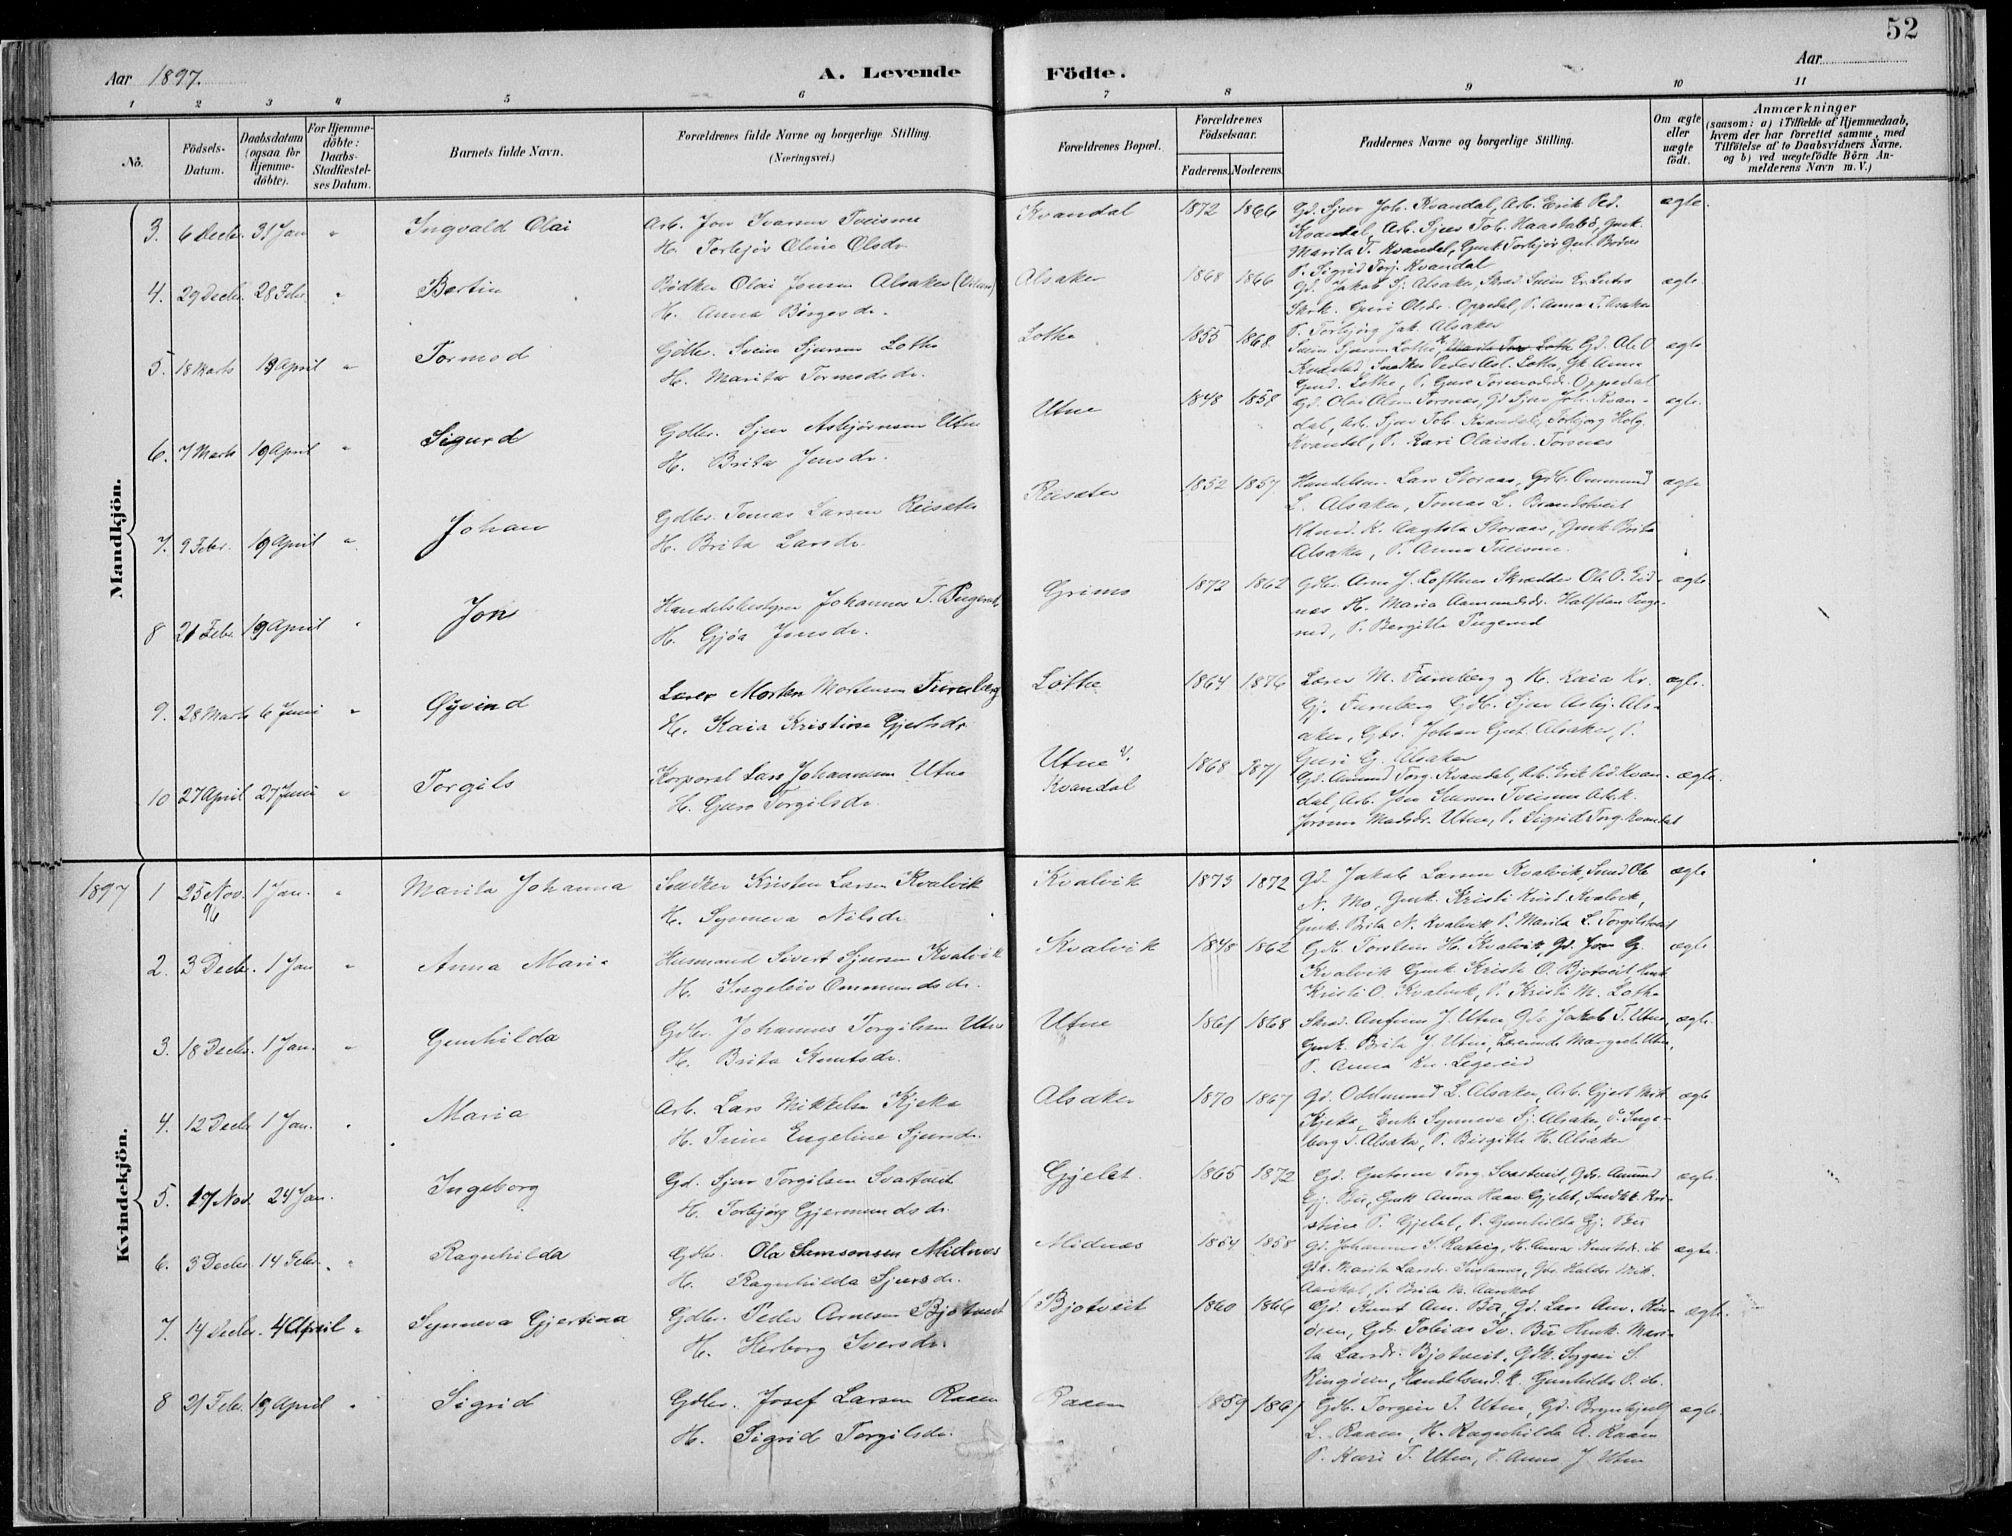 52
Aar 1897.
A. Levende Födte.
Aar
1 2 3 4 5 6 7 8 9 10 11
No.
Födsels-Datum.
Daabsdatum (ogsaa for Hjemme-døbte).
For Hjemme-döbte: Daabs-Stadfæstel-ses Datum.
Barnets fulde Navn.
Forældrenes fulde Navne og borgerlige Stilling.
(Næringsvei.)
Forældrenes Bopæl.
Forældrenes Födselsaar.
Faderens. Moderens.
Faddernes Navne og borgerlige Stilling.
Om ægte eller uægte födt.
Anmærkninger
(saasom: a) i Tilfælde af Hjemmedaab,
hvem der har forrettet samme, med
Tilföielse af to Daabsvidners Navne,
og b) ved uægtefödte Börn An-
melderens Navn m. V.)
Mandkjön.
3. 6 Decbr. 31 Jan " Ingvald Olai
Arb. Jon Ivarsen Tveisme
H. Torbjør Oline Olsdr.
Kvandal 1872 1866
Gd. Sjur Joh. Kvandal, Arb. Erik Ped.
Kvandal, Arb. Sjur Tob. Haastabø, Gmk.
Marita T. Kvandal, Gmk Torbjør Gut.
P. Sigrid Torg. Kvandal
ægte.
4. 29 Decbr. 28 Febr. " Bertin
Bødker Olai Jonsen Alsaker
H. Anna Børgesdr.
Alsaker 1868 1866
Gd. Jakob Sj. Alsaker, Skrd. Svein
Guri Olsdr. Oppedal, P. Anna T. Alsaker
P. Torbjørg Jak. Alsaker
ægte.
5. 18 Marts 19 April " Tormod
Gdbr. Svein Sjursen Lothe
H. Marita Tormodsdr.
Lothe 1855 1868
Svein Sjursen Lothe, Gd. Ole O
Kvæstad, Snedker Peder Lothe, Gk Anna
Gund. Lothe, P. Guro Tormodsdr. Oppedal
ægte
6. 7 Marts 19 April " Sigurd
Gdbr. Sjur Asbjørnsen Utne
H. Brita Jonsdr.
Utne 1848 1858
Gd. Olai Olsen Torsnes, Gd Sjur Joh. Kvan-
dal, Arb. Sjur Tob. Kvandal, Torbjørg Holg
Kvandal, P. Kari Olaisdr. Torsnes
ægte.
7. 9 Febr. 19 April " Johan
Gdbr. Tomas Larsen Reisæter
H. Brita Larsdr.
Reisæter 1852 1857
Handelsm. Lars Storaas, Gdb. Ommund
L. Alsaker, Tomas L. Brandstveit
Hdmd. K. Aagtha Storaas, Gmk Brita
Alsaker, P. Anna Tveisme.
ægte
8 21 Febr. 19 April " Jon
Handelsbestyrer Johannes T. Pugerud
H. Gjøa Jonsdr.
Grimo 1872 1862
Gdbr. Arne J. Lofthus Skrædder Ole O. Eid-
nes H. Maria Aamundsdr. Halfdan Puge-
rud, P. Bergitte Pugerud
ægte
9. 28 Marts 6 Juni " Øyvind
Lærer Morten Mortensen Furuberg
H. Kaia Kristine Gjertsdr
Lothe 1864 1876
Lærer M. Furuberg og H. Kaia Kr.
Gj. Furuberg Gdb. Sjur Asbj. Als-
aker, Gbr. Johan Gut. Alsaker, P.
Guri G. Alsaker
ægte.
10 27 April 27 Juni " Torgils
Korporal Lars Johannesen Utne
H. Guro Torgilsdr.
Utne v. Kvandal 1868 1871
Gd. Amund Torg. Kvandal, Arb. Erik Ped. Kvan-
dal, Arb. Jon Ivarsen Tveisme Arb.k.
Madsdr. Utne, P. Sigrid Torg. Kvandal
ægte.
Kvindekjön.
1897
1 25 Nov. 96 1 Jan. " Marita Johanna
Snedker Kristen Larsen Kvalvik
H. Synneva Nilsdr.
Kvalvik 1873 1872
Gd. Jakob Larsen Kvalvik, Smed Ole
N. Mo, Gmk. Kristi Knut. Kvalvik,
Gmk. Brita N. Kvalvik P. Marita L. Torgilstveit
ægte
2. 3 Decbr. 1 Jan " Anna Maria
Husmand Sivert Sjursen Kvalvik
H. Ingeleiv Ommundsdr.
Kvalvik 1848 1862
Gdb. Torstein H. Kvalvik, Gd. Jon G.
Kvalvik Gmk. Kristi O. Bjotveit Hmk
Kristi O. Kvalvik, P. Kristi M. Lothe
ægte
3. 18 Decbr. 1 Jan. " Gunhilda
Gdbr. Johannes Torgilsen Utne
H. Brita Knutsdr.
Utne 1861 1868
Skrd. Anfinn J. Utne, Gdr. Jakob T. Utne,
Gmk. Brita J. Utne, Lærerinde Margrete Utne,
P. Anna Kn. Legereid
ægte.
4. 12 Decbr 1 Jan. " Maria
Arb. Lars Mikkelsen Kjeka
H. Trine Engeline Sjursdr.
Alsaker 1870 1867
Gd. Oddmund L. Alsaker, Arb. Gjert Mik
Kjeka, Enke Synneva Sj. Alsaker, P. Inge-
borg T. Alsaker, P. Birgitte H. Alsaker
ægte
5. 17 Nov. 24 Jan. Ingeborg
Gd. Sjur Torgilsen Svartveit
H. Torbjørg Gjermundsdr.
Gjelet. 1865 1872
Gd. Gutorm Torg. Svartveit, Gdr. Amund
Gj. Bu, Gmk Anna Haav. Gjelet, Smedk. Kri-
stine P. Gjelet, P. Gunhilda Gj. Bu
ægte.
6. 3 Decbr. 14 Febr. " Ragnhilda
Gdbr. Ola Samsonsen Midnes
H. Ragnhilda Sjursdr.
Midnæs 1854 1858
Gd. Johannes S. Rateig, H. Anna Knutsdr. ib
Gdk. Marita Larsdr. Gdr Haldor Erik.
Aarekol, P. Brita M. Aarekol
ægte.
7. 14 Decbr. 4 April " Synneva Gjertina
Gdbr. Peder Arnesen Bjotveit
H. Herborg Iversdr.
Bjotveit 1860 1866
Gd. Knut Am. Bu, Gd. Lars Am. Rin-
øien, Gdr. Tobias Iv. Bu Hmk. Mari-
ta Larsdr. Bjotveit, Gdk. Sygni S.
Ringøien, Handelsmd. k. Gunhilda P. ib.
ægte.
8 21 Febr. 19 April " Sigrid
Gdbr. Josef Larsen Raaen
H. Sigrid Torgilsdr.
Raaen 1859 1861
Gdb. Torgeir T. Utne, Gd. Brynhjulf
L. Raaen, H. Ragnhilda A. Raaen
P. Kari T. Utne, P. Anna J. Utne
ægte.